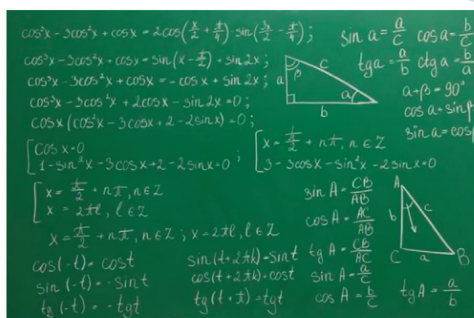 cos³x - 3cos²x + cosx = 2cos(x/2 + π/4) · sin(3x/2 - π/4);
cos³x - 3cos²x + cosx = sin(x - π/2) + sin2x;
cos³x - 3cos²x + cosx = -cosx + sin2x;
cos³x - 3cos²x + 2cosx - sin2x = 0;
cosx(cos²x - 3cosx + 2 - 2sinx) = 0;
[ cosx = 0
1 - sin²x - 3cosx + 2 - 2sinx = 0 ;
[ x = π/2 + nπ, n ∈ Z
3 - 3cosx - sin²x - 2sinx = 0
[ x = π/2 + nπ, n ∈ Z
x = 2πl, l ∈ Z
x = π/2 + nπ, n ∈ Z ; x = 2πl, l ∈ Z
cos(-t) = cost
sin(-t) = -sint
tg(-t) = -tgt
sin(t + 2πk) = sint
cos(t + 2πk) = cost
tg(t + π) = tgt
sin a = a/c cos a = b/c
tg a = a/b ctg a = b/a
a + β = 90°
cos a = sin β
sin a = cos
β c
a a
b
sin A = CB/AB
cos A = AC/AB
tg A = CB/AC
sin A = a/c
cos A = b/c
tg A = a/b
A
b c
C a B